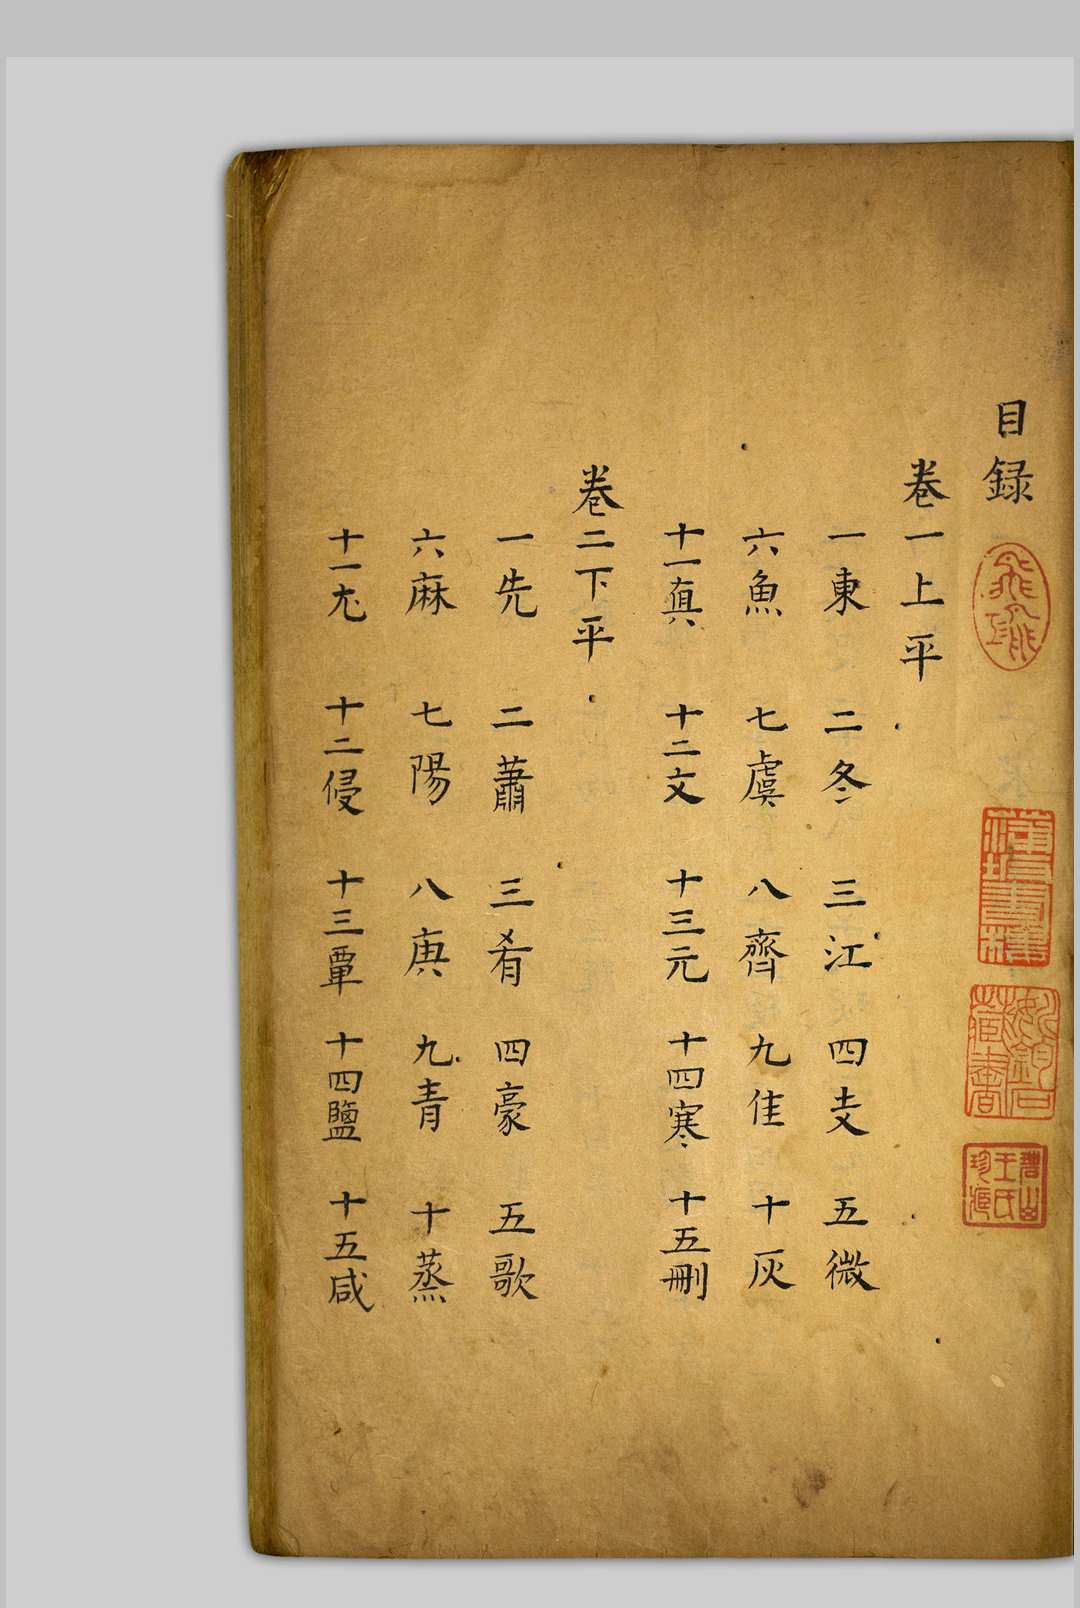 目録
卷一上平
一東 二冬 三江 四支 五微
六魚 七虞 八齊 九佳 十灰
十一真 十二文 十三元 十四寒 十五刪
卷二下平
一先 二蕭 三肴 四豪 五歌
六麻 七陽 八庚 九青 十蒸
十一尤 十二侵 十三覃 十四鹽 十五咸
碧山王氏珍藏